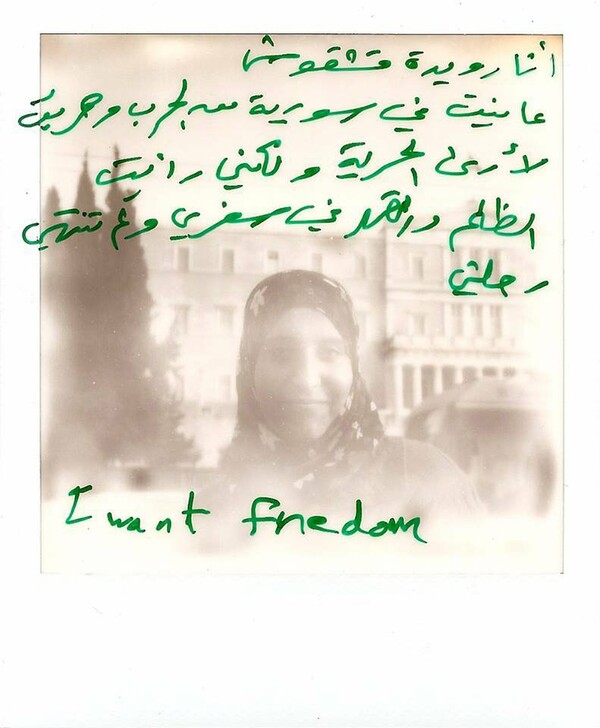 أنا رويدة قشقوش
عانيت في سورية من الحرب وهربت
لأرى الحرية ولكني رأيت
الظلم والقهر في سفري ولم تنتهي
رحلتي
I want freedom